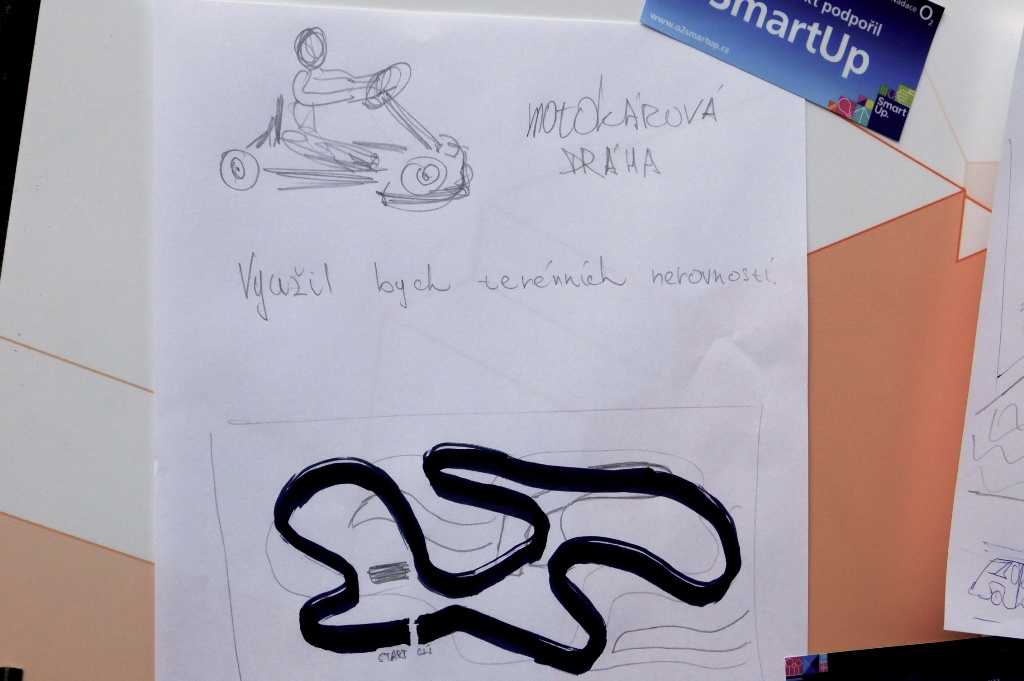 kt podpořil
Nadace O2
SmartUp
www.o2smartup.cz
Smart
Up.
MOTOKÁROVÁ
DRÁHA
Využil bych terénních nerovností.
START CÍL